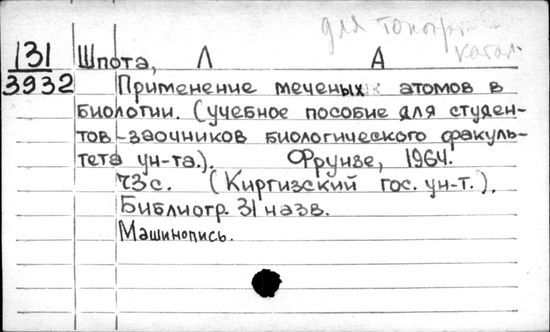 для топогр.
катал.
131 Шпота, Л А
3932 Применение меченых атомов в
биологии. (учебное пособие для студен-
тов-заочников биологического факуль-
тета ун-та.). Фрунзе, 1964.
73 с. (Киргизский гос. ун-т.).
Библиогр. 31 назв.
Машинопись.